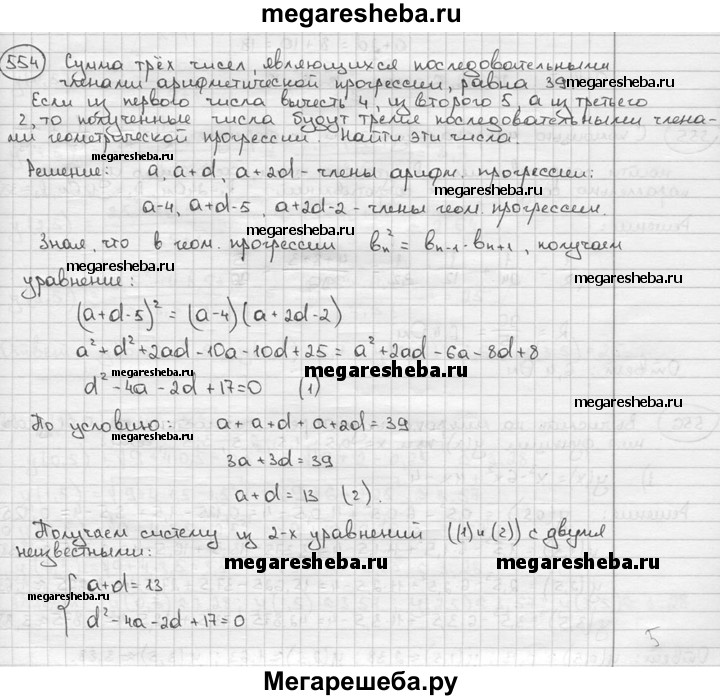 megaresheba.ru
554 Сумма трёх чисел, являющихся последовательными
членами арифметической прогрессии, равна 39
megaresheba.ru
Если из первого числа вычесть 4, из второго 5, а из третьего
2, то полученные числа будут тремя последовательными члена-
ми геометрической прогрессии. Найти эти числа.
megaresheba.ru
Решение: a, a+d, a+2d - члены арифм. прогрессии:
megaresheba.ru
a-4, a+d-5, a+2d-2 - члены геом. прогрессии.
Зная, что в геом. прогрессии bₙ² = bₙ₋₁ · bₙ₊₁, получаем
megaresheba.ru
уравнение:
megaresheba.ru
(a+d-5)² = (a-4)(a+2d-2)
a²+d²+2ad-10a-10d+25 = a²+2ad-6a-8d+8
megaresheba.ru
d²-4a-2d+17=0 (1)
megaresheba.ru
По условию: a+a+d+a+2d=39
megaresheba.ru
3a+3d=39
a+d=13 (2).
Получаем систему из 2-х уравнений ((1) и (2)) с двумя
неизвестными:
megaresheba.ru megaresheba.ru
{ a+d=13
megaresheba.ru
d²-4a-2d+17=0
5
Мегарешеба.ру